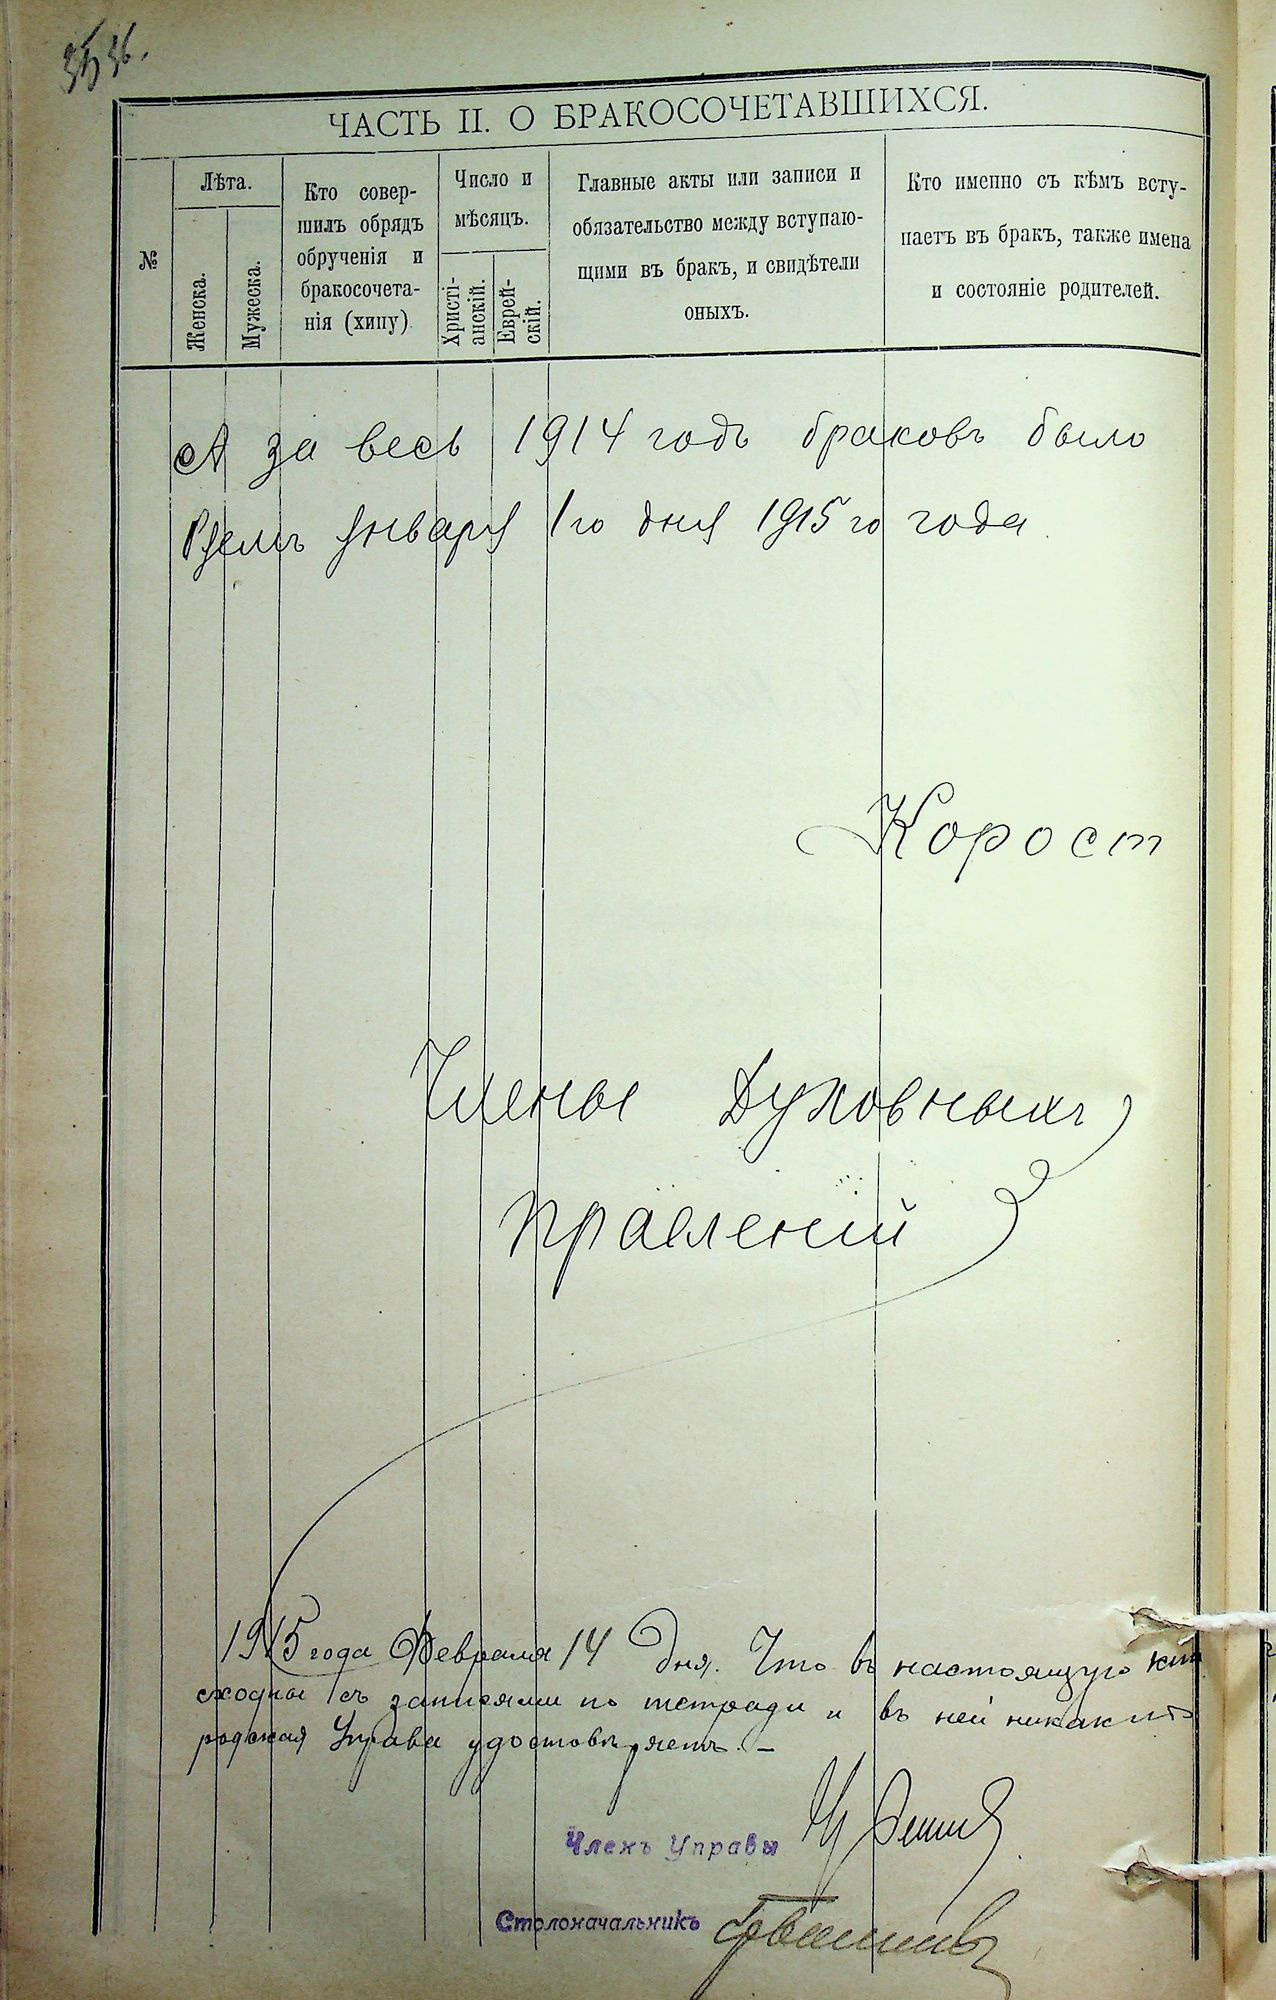 36.
ЧАСТЬ II. О БРАКОСОЧЕТАВШИХСЯ.
№
Лѣта.
Женска.
Мужеска.
Кто совер-
шилъ обрядъ
обрученія и
бракосочета-
нія (хипу)
Число и
мѣсяцъ.
Христі-
анскій.
Еврей-
скій.
Главные акты или записи и
обязательство между вступаю-
щими въ бракъ, и свидѣтели
оныхъ.
Кто именно съ кѣмъ всту-
паетъ въ бракъ, также имена
и состояніе родителей.
А за весь 1914 годъ браковъ было
Января 1го дня 1915го года
Корост
Члены Духовныхъ
правленій
1915 года Февраля 14 дня. Что въ настоящую кни
сходны съ записями по тетради и въ ней никаких
родская Управа удостовѣряетъ. –
Членъ Управы
Столоначальникъ